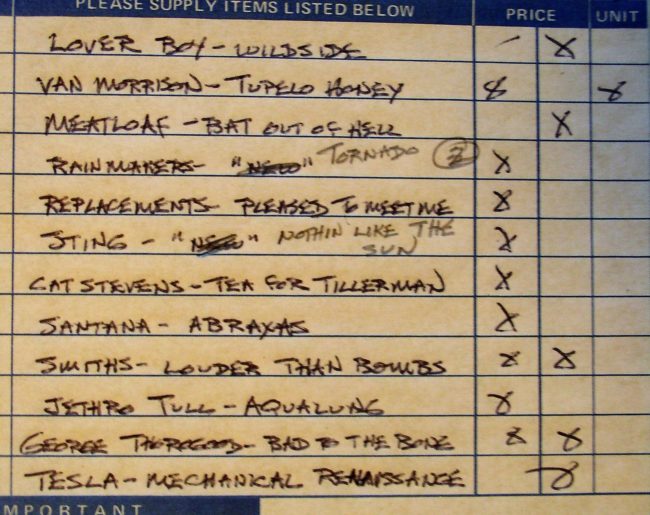 PLEASE SUPPLY ITEMS LISTED BELOW PRICE UNIT
LOVER BOY - WILDSIDE X
VAN MORRISON - TUPELO HONEY X X
MEATLOAF - BAT OUT OF HELL X
RAINMAKERS - "NEW" TORNADO 2 X
REPLACEMENTS - PLEASED TO MEET ME X
STING - "NEW" NOTHIN LIKE THE SUN X
CAT STEVENS - TEA FOR TILLERMAN X
SANTANA - ABRAXAS X
SMITHS - LOUDER THAN BOMBS X X
JETHRO TULL - AQUALUNG X
GEORGE THOROGOOD - BAD TO THE BONE X X
TESLA - MECHANICAL RENAISSANCE X
MPORTANT